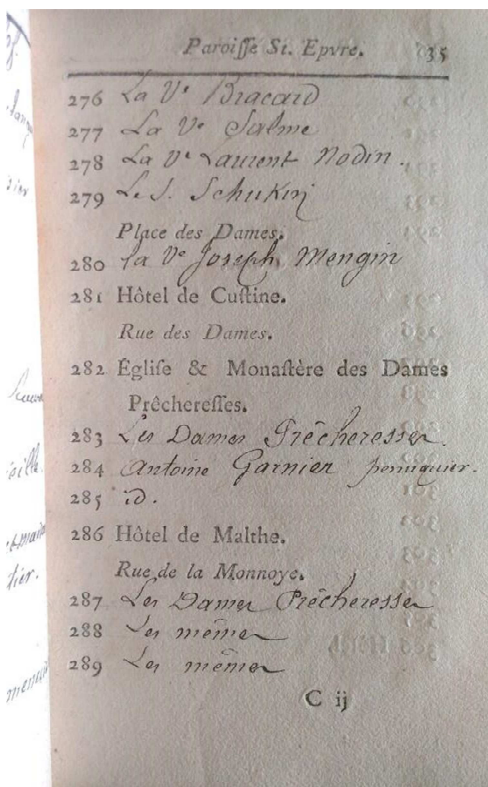 Paroiſſe St. Epvre. 35
276 La Ve Bracard
277 La Ve Salme
278 La Ve Laurent Nodin.
279 Le S. Schukin
Place des Dames.
280 la Ve Joseph Mengin
281 Hôtel de Cuſtine.
Rue des Dames.
282 Égliſe & Monaſtère des Dames
Prêchereſſes.
283 Les Dames Prêcheresses.
284 Antoine Garnier perruquier.
285 id.
286 Hôtel de Malthe.
Rue de la Monnoye.
287 Les Dames Prêcheresses
288 Les mêmes
289 Les mêmes
C ij